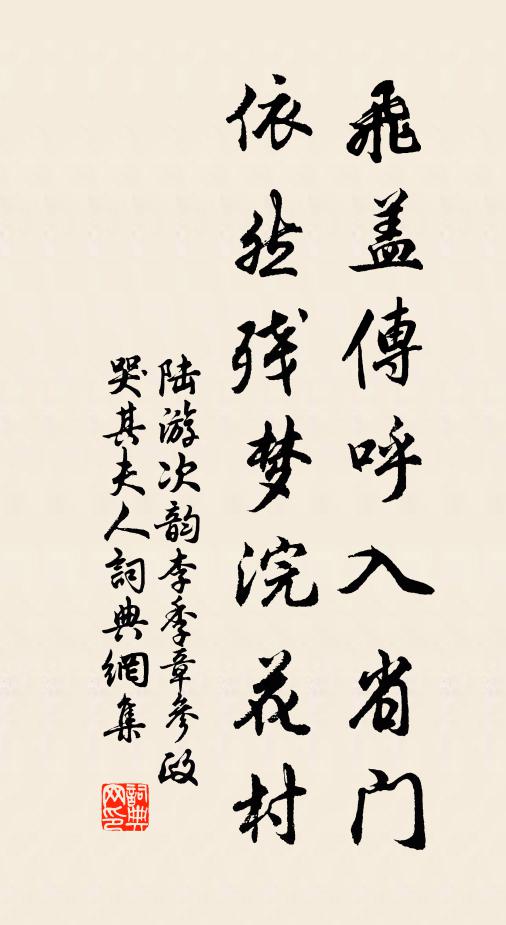 飛盖傳呼入省门
依然残梦浣花村
陆游次韵李季章參政
哭其夫人詞典網集
詞典网印